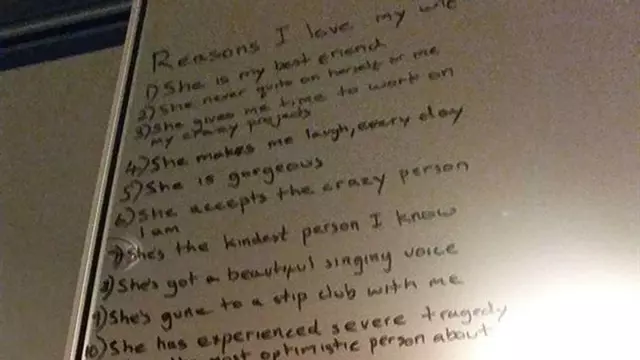 Reasons I love my wife
1) She is my best friend
2) She never quits on herself or me
3) She gives me time to work on
my crazy projects
4) She makes me laugh, every day
5) She is gorgeous
6) She accepts the crazy person
I am
7) She's the kindest person I know
8) She's got a beautiful singing voice
9) She's gone to a stip club with me
10) She has experienced severe tragedy
most optimistic person about